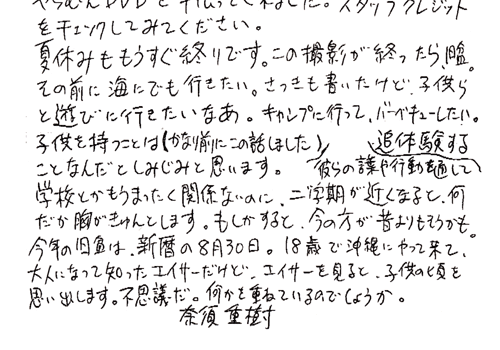 やちむんDVDと手伝ってくれました。スタッフクレジット
をチェックしてみてください。
夏休みももうすぐ終りです。この撮影が終ったら、旧盆。
その前に海にでも行きたい。さっきも書いたけど、子供ら
と遊びに行きたいなあ。キャンプに行って、バーベキューしたい。
子供を持つことは(かなり前にこの話しました)、追体験する
彼らの言葉や行動を通して
ことなんだとしみじみと思います。
学校とかもうまったく関係ないのに、二学期が近くなると、何
だか胸がきゅんとします。もしかすると、今の方が昔よりもそうかも。
今年の旧盆は、新暦の8月30日。18歳で沖縄にやって来て、
大人になって知ったエイサーだけど、エイサーを見ると、子供の頃を
思い出します。不思議だ。何かを重ねているのでしょうか。
奈須重樹